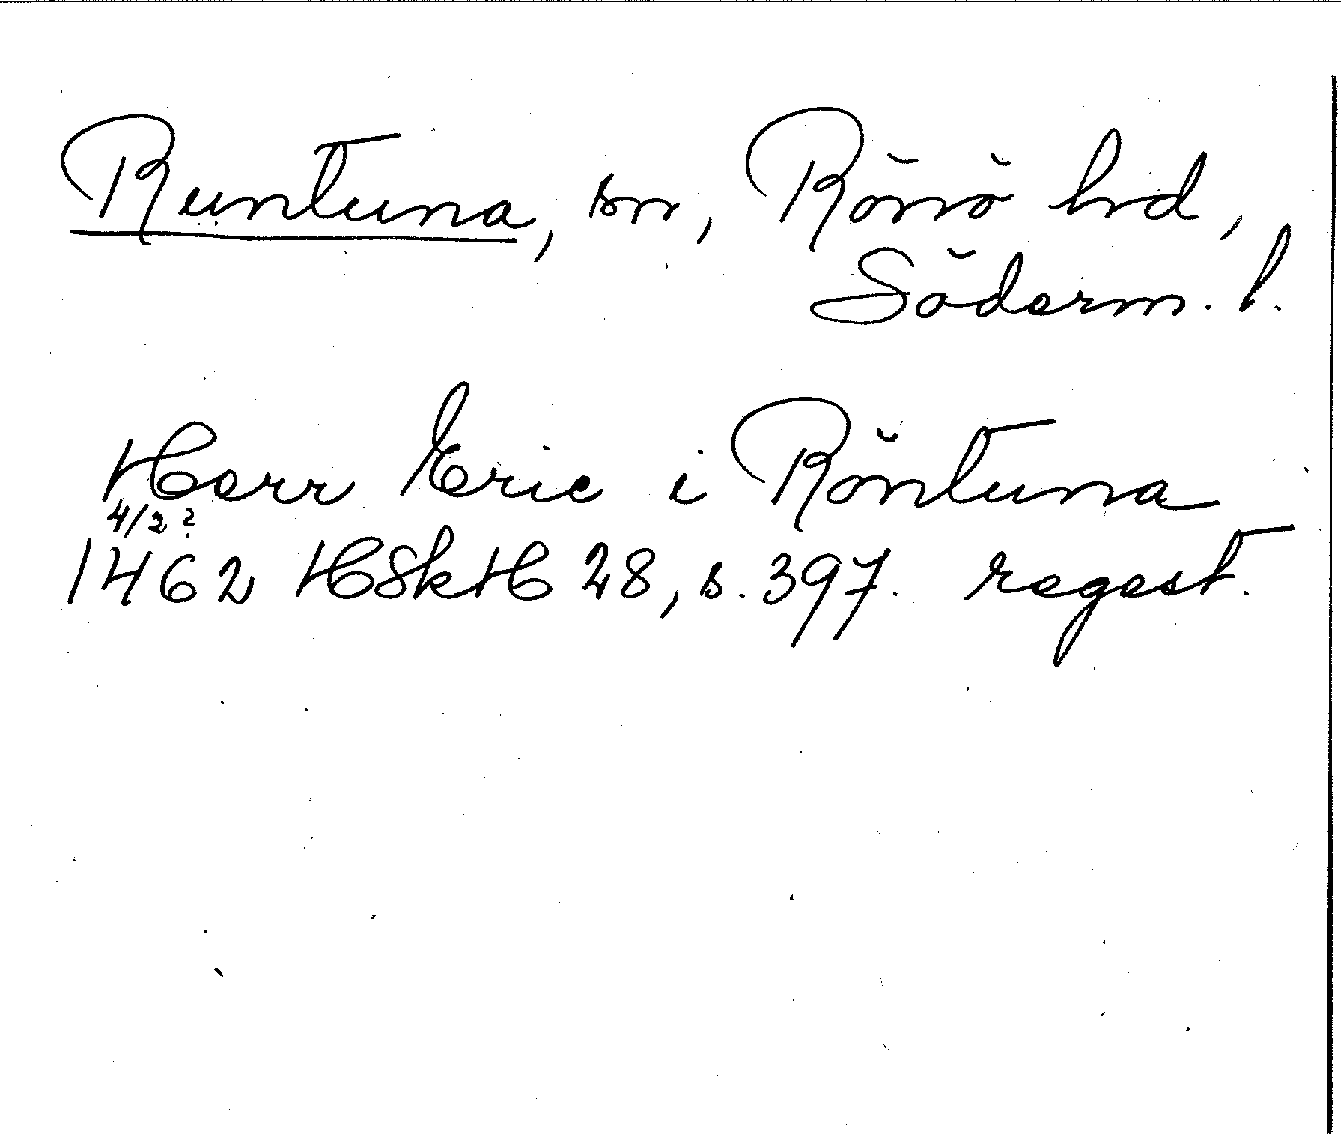 Runtuna, sn, Rönö hrd,
Söderm. l.
Herr Eric i Röntuna
4/2 ?
1462 HSkH 28, s. 397. regest.